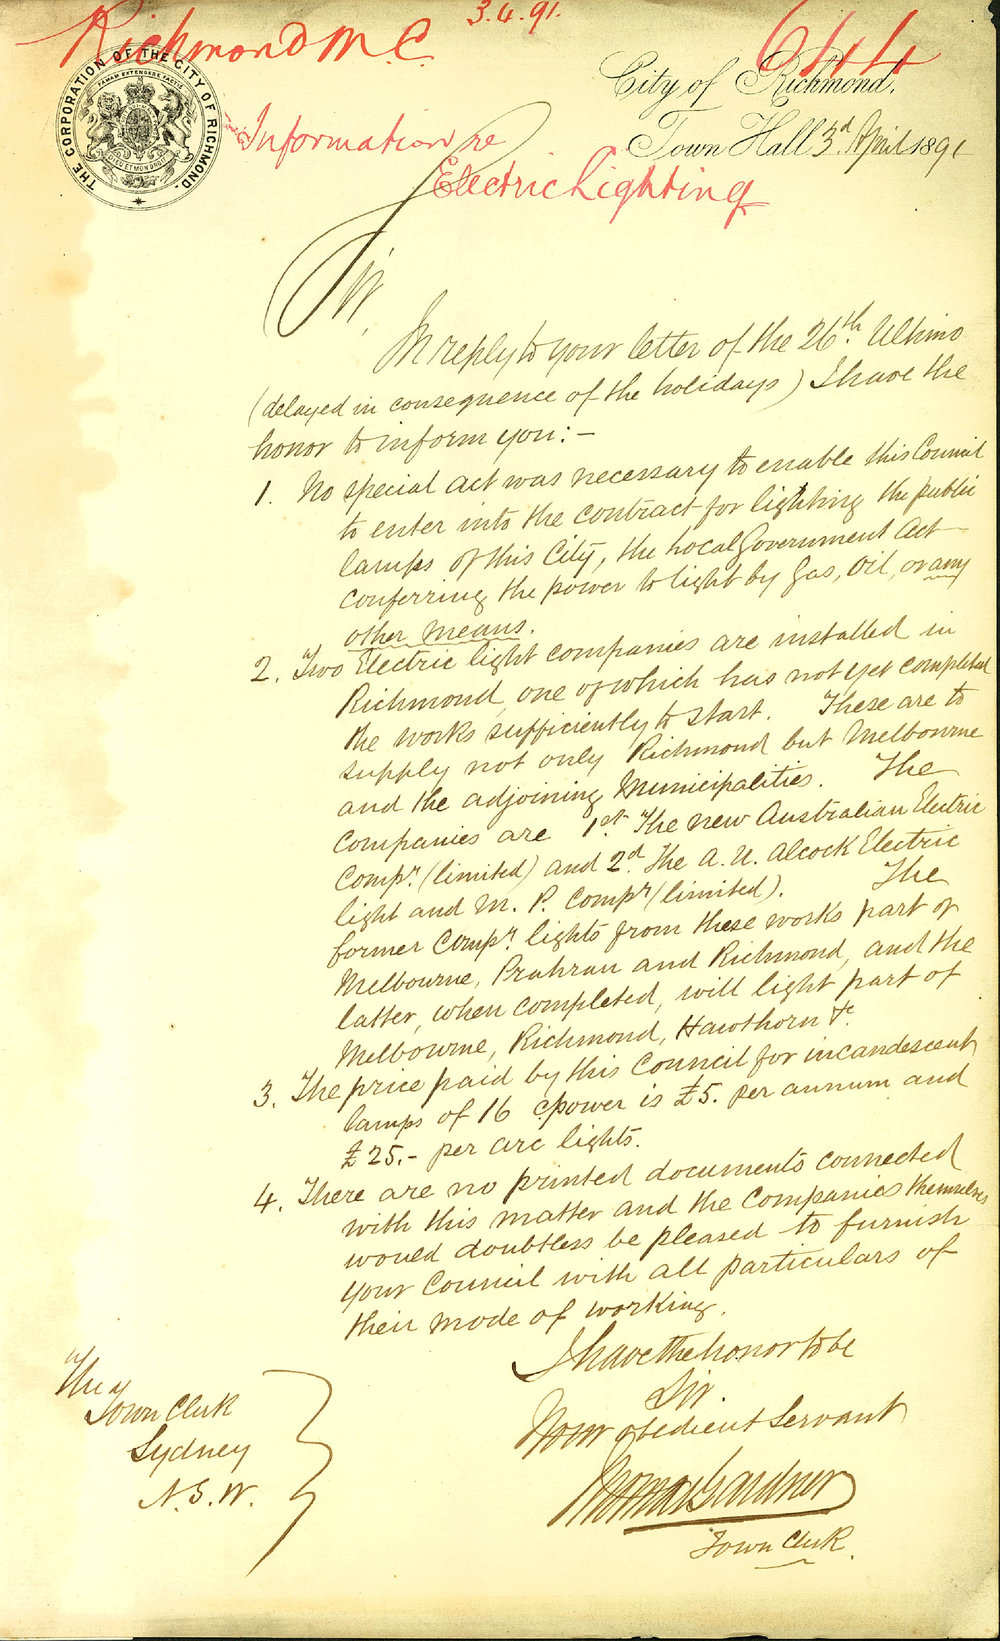 Richmond M.C.
3.4.91.
644
THE CORPORATION OF THE CITY OF RICHMOND.
FAMAM EXTENDERE FACTIS
DIEU ET MON DROIT
City of Richmond.
Town Hall 3d. April 1891
Information re
Electric Lighting
Sir,
In reply to your letter of the 26th. Ultimo
(delayed in consequence of the holidays) I have the
honor to inform you:-
1. No special act was necessary to enable this Council
to enter into the contract for lighting the public
lamps of this City, the Local Government Act
conferring the power to light by Gas, Oil, or any
other means.
2. Two Electric light companies are installed in
Richmond, one of which has not yet completed
the works sufficiently to start. These are to
supply not only Richmond but Melbourne
and the adjoining Municipalities. The
Companies are 1st. The new Australian Electric
Compy. (limited) and 2d. The A. U. Alcock Electric
light and M. P. Compy (limited). The
former Compy. lights from these works part of
Melbourne, Prahran and Richmond, and the
latter, when completed, will light part of
Melbourne, Richmond, Hawthorn &c.
3. The price paid by this Council for incandescent
lamps of 16 cpower is £5. per annum and
£25.- per arc lights.
4. There are no printed documents connected
with this matter and the Companies themselves
would doubtless be pleased to furnish
your Council with all particulars of
their mode of working.
I have the honor to be
Sir.
Your obedient Servant
Thomas Gardner
Town Clerk.
The
Town Clerk
Sydney
N.S.W.